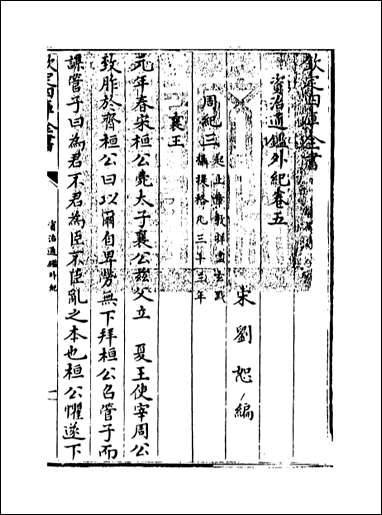 欽定四庫全書
資治通鑑外紀卷五
宋 劉恕 編
周紀三 起上章敦牂盡玄黓攝提格凡三十三年
襄王
元年春宋桓公薨太子襄公茲父立 夏王使宰周公
致胙於齊桓公曰以爾自卑勞無下拜桓公召管子而
謀管子曰為君不君為臣不臣亂之本也桓公懼遂下
欽定四庫全書 資治通鑑外紀 一